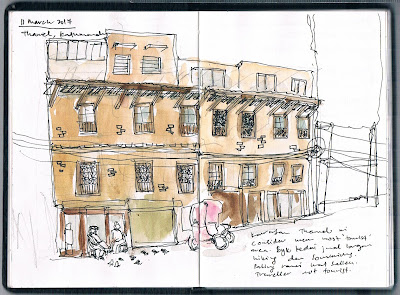 11 March 2017
Thamel, Kathmandu
Kawasan Thamel ni
consider mcm most touristy
area. Byk kedai jual barang
hiking dan souvenirs.
Paling ramai mat salleh.
Traveller not tourist.